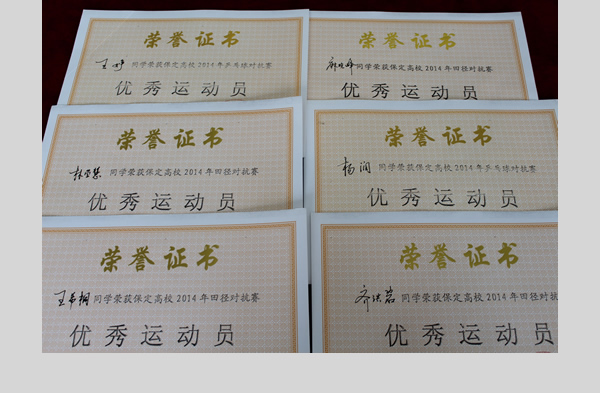 荣誉证书
王 同学荣获保定高校2014年乒乓球对抗赛
优秀运动员
荣誉证书
同学荣获保定高校2014年田径对抗赛
优秀运动员
荣誉证书
同学荣获保定高校2014年田径对抗赛
优秀运动员
荣誉证书
杨润 同学荣获保定高校2014年乒乓球对抗赛
优秀运动员
荣誉证书
同学荣获保定高校2014年田径对抗赛
优秀运动员
荣誉证书
同学荣获保定高校2014年田径对抗
优秀运动员